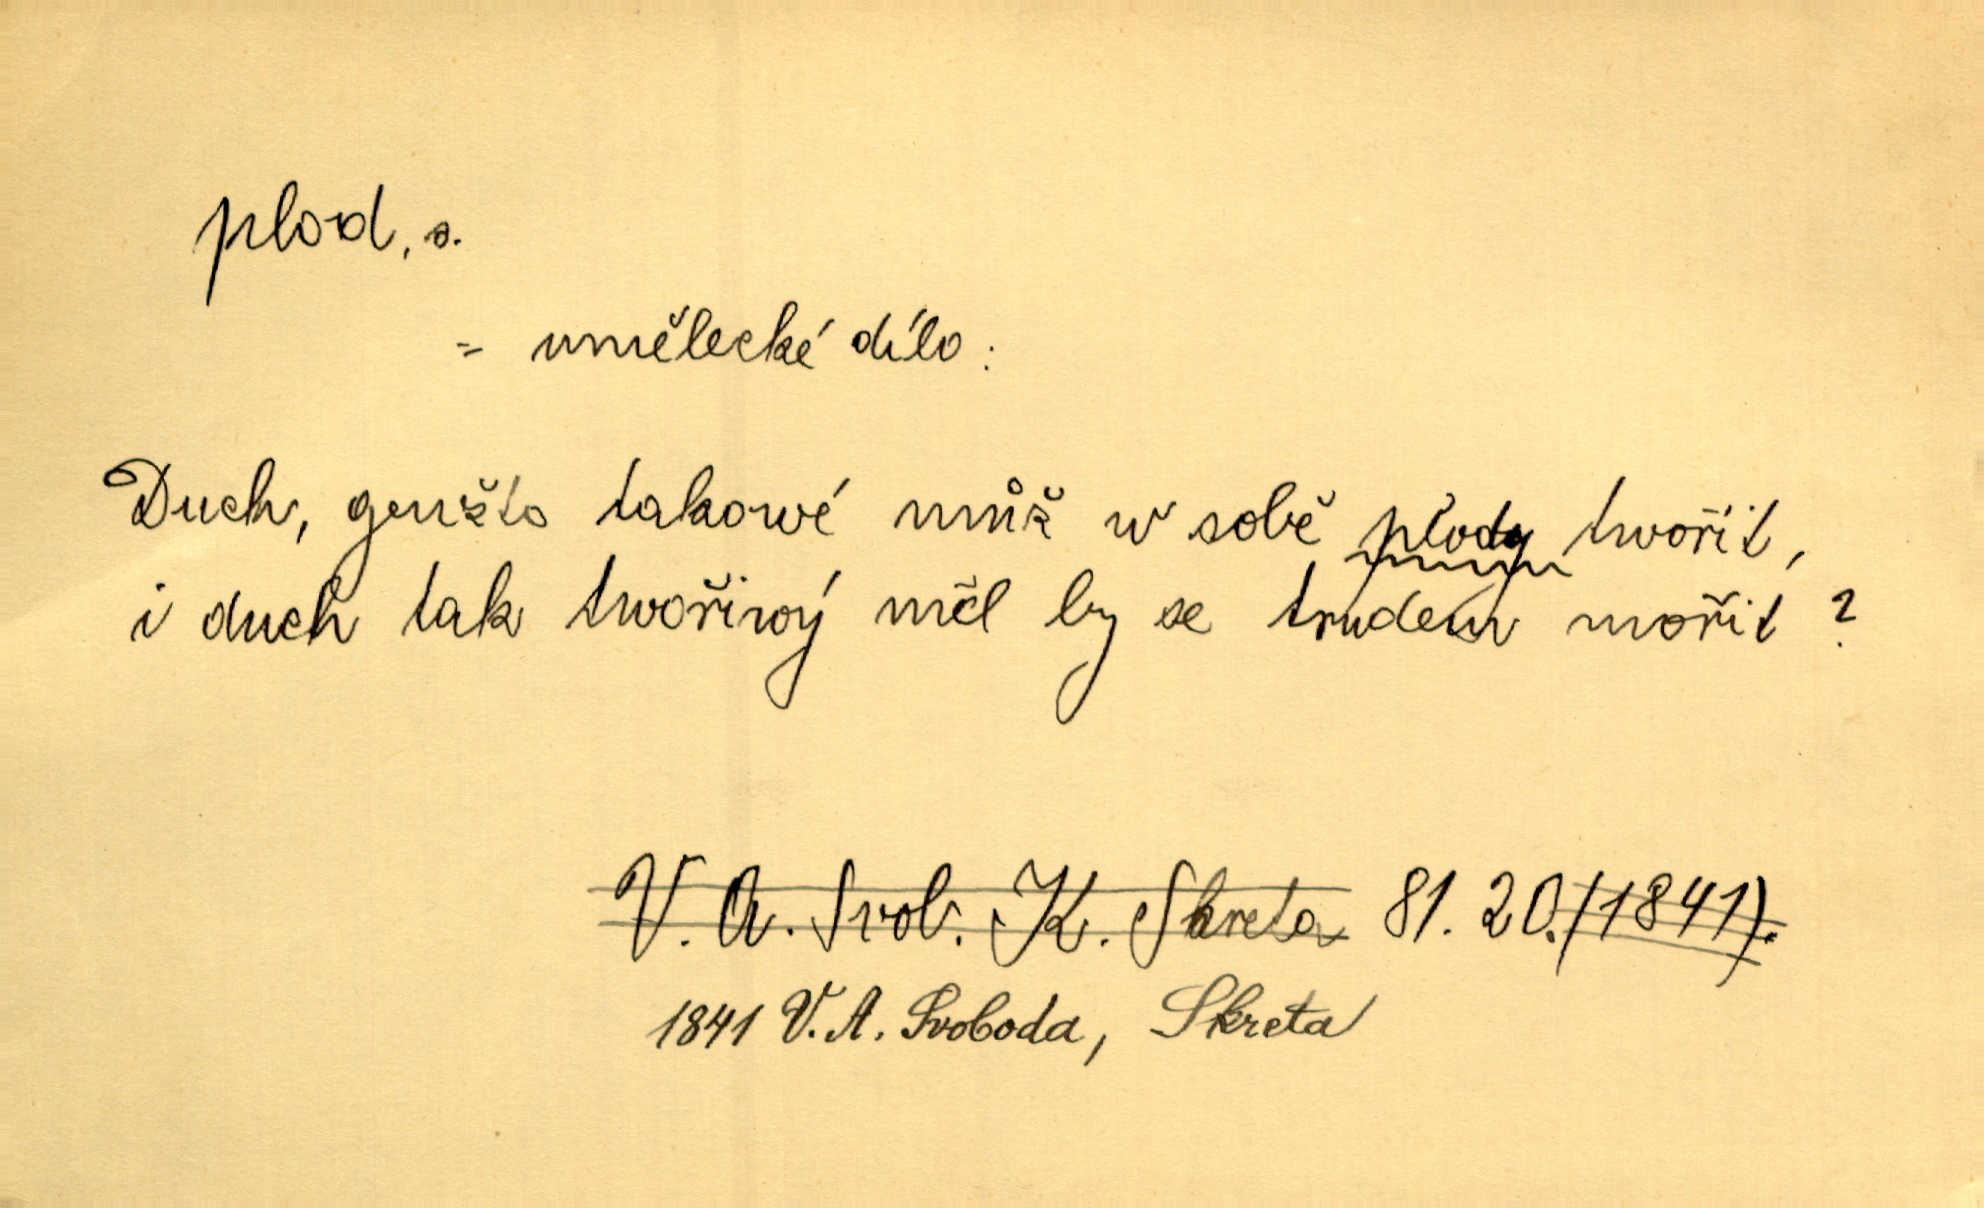 plod, s.
= umělecké dílo:
Duch, genžto takowé můž w sobě plody twořit,
i duch tak twořiwý měl by se trudem mořit?
V. A. Svob. K. Skreta 81. 20. (1841).
1841 V. A. Svoboda, Skreta